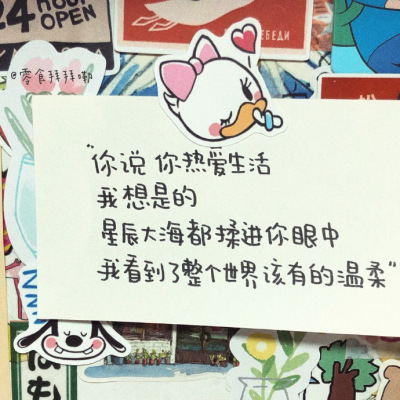 24 HOUR
OPEN
ЛЕБЕДИ
@零食拜拜嘞
"你说 你热爱生活
我想是的
星辰大海都揉进你眼中
我看到了整个世界该有的温柔"